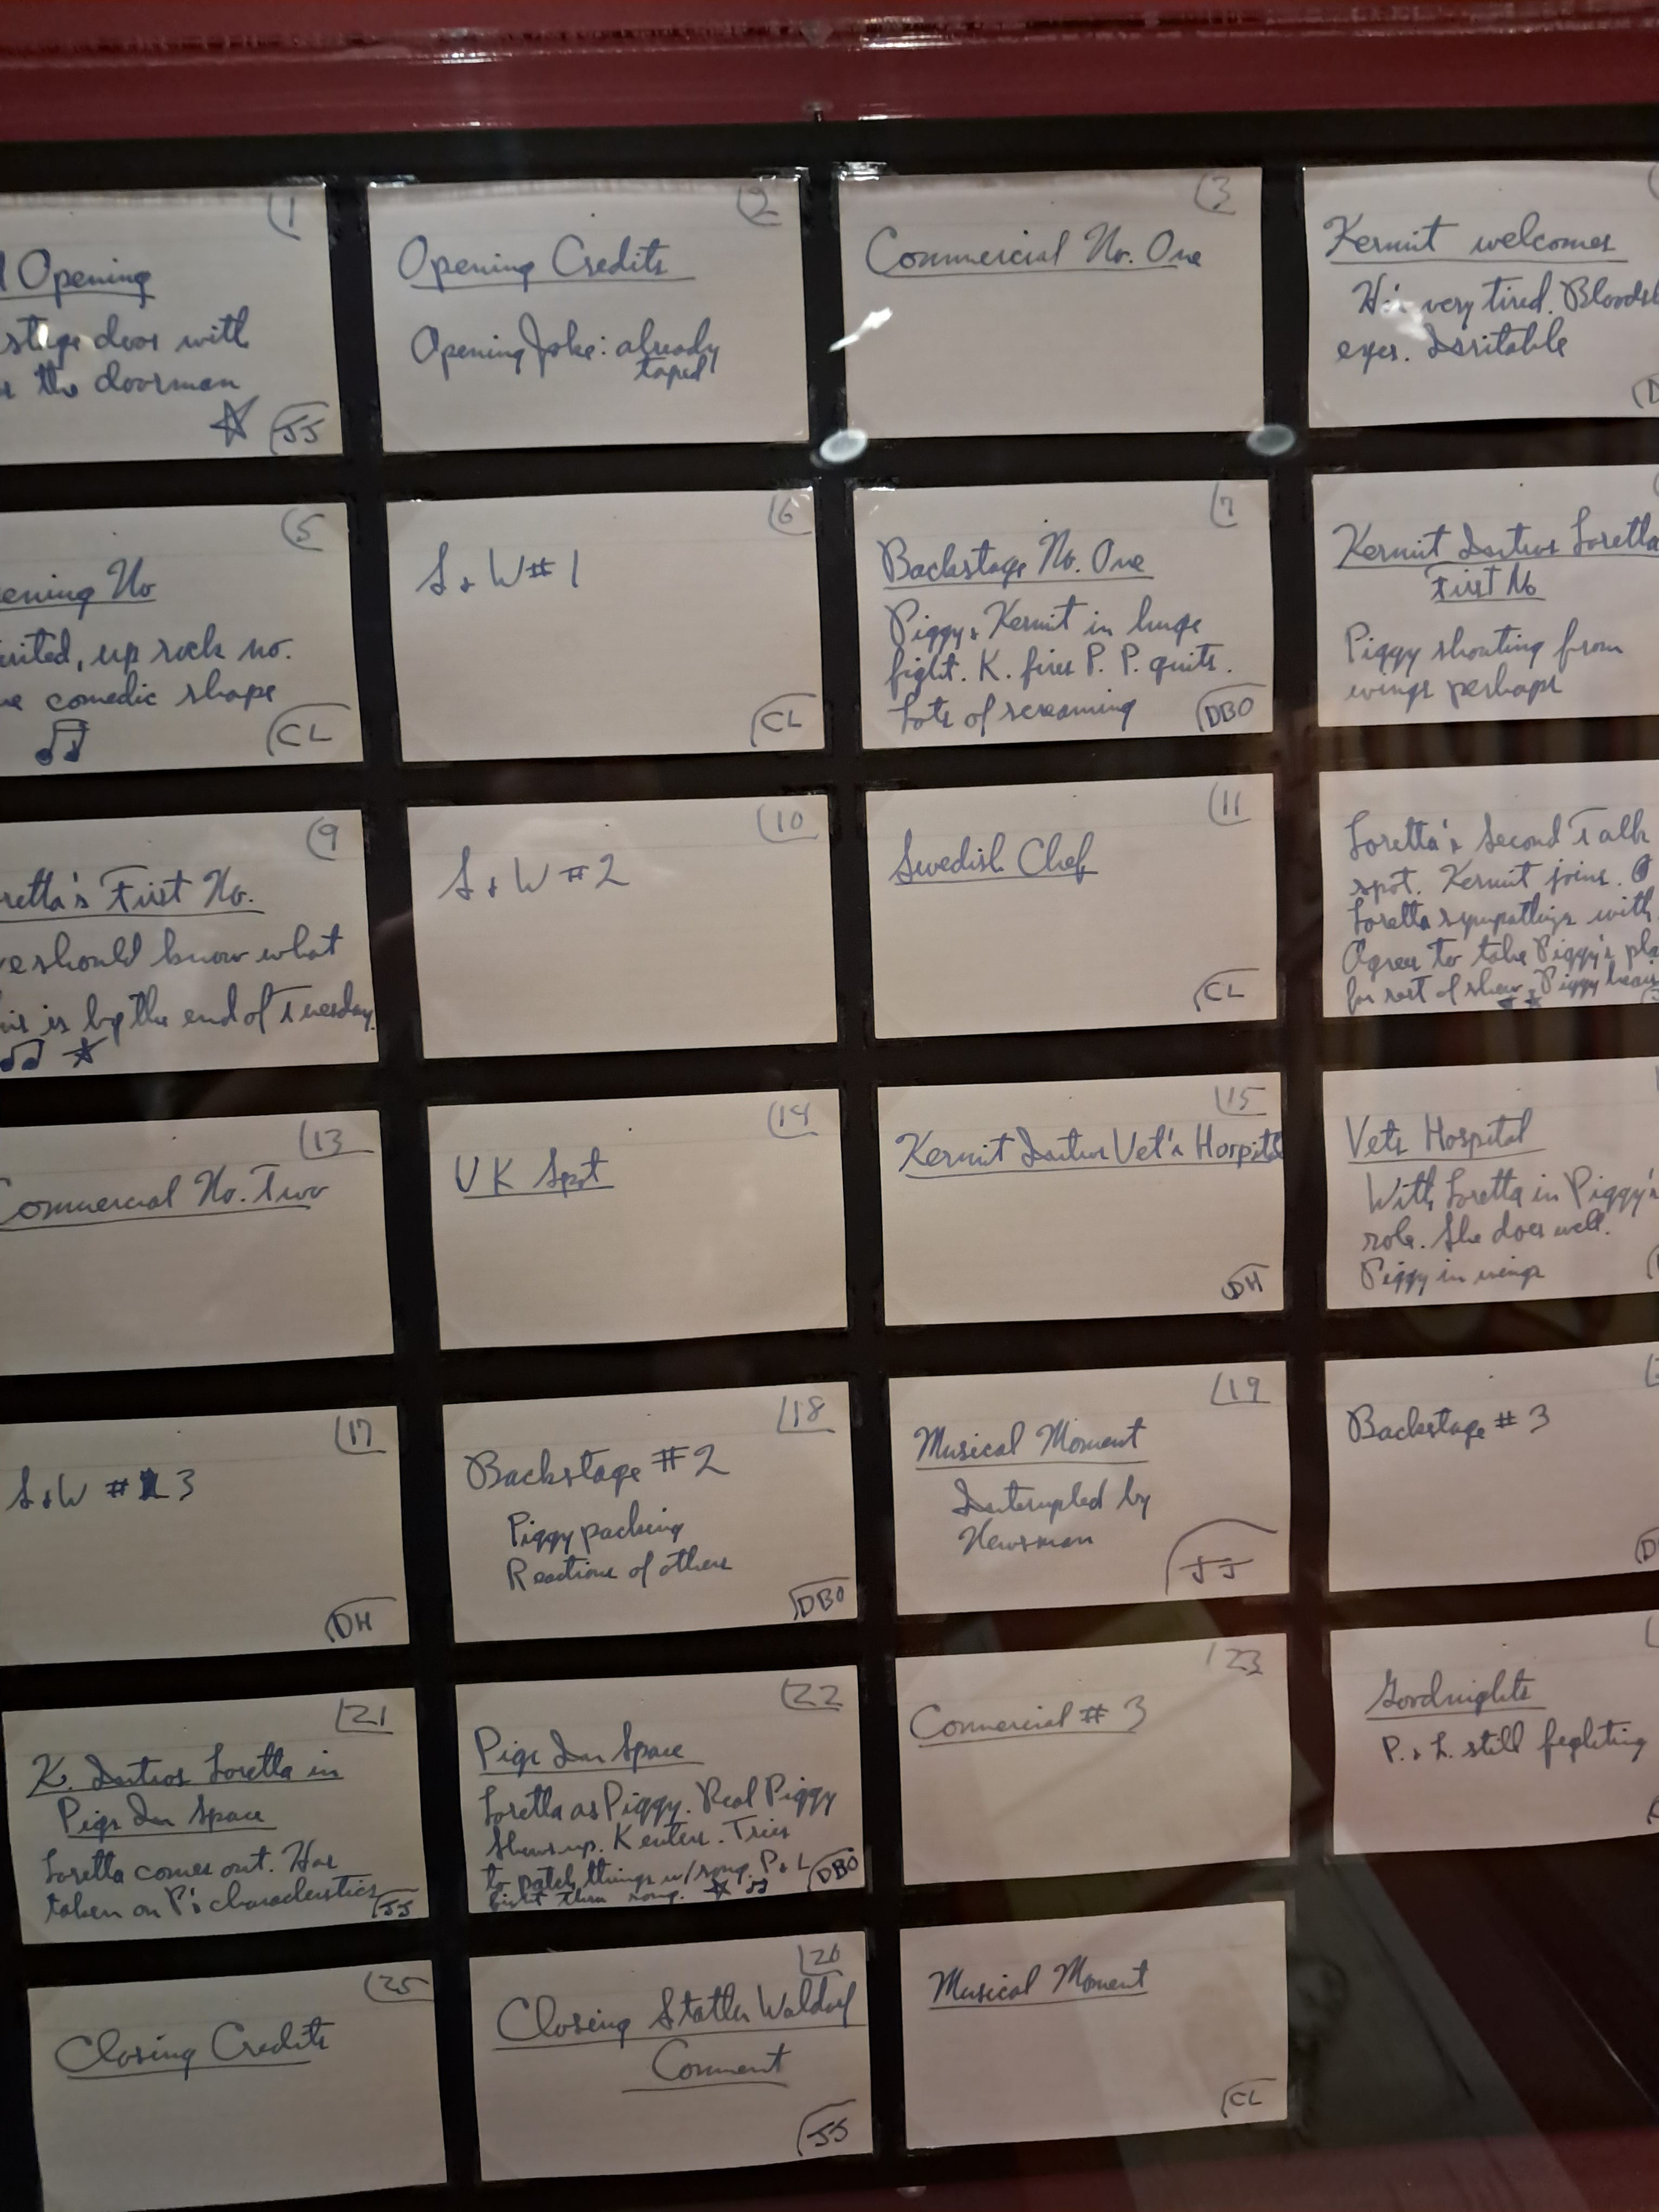 1
Opening
stage door with
the doorman
JJ
2
Opening Credits
Opening Joke: already
taped
3
Commercial No. One
Kermit welcomes
He's very tired.
eyes. Irritable
5
No
up rock no.
comedic shape
CL
6
S & W # 1
CL
7
Backstage No. One
Piggy & Kermit in huge
fight. K. fires P. P. quits.
Lots of screaming
DBO
Kermit Intros Loretta
First No
Piggy shouting from
wings perhaps
9
First No.
should know what
is by the end of Tuesday.
10
S & W # 2
11
Swedish Chef
CL
Loretta's Second Talk
spot. Kermit joins.
Loretta sympathizes with
Agrees to take Piggy's
for rest of show. Piggy
13
Commercial No. Two
14
UK Spot
15
Kermit Intros Vet's Hospital
DH
Vets Hospital
With Loretta in Piggy's
role. She does well.
Piggy in wings
17
S & W # 3
DH
18
Backstage # 2
Piggy packing
Reactions of others
DBO
19
Musical Moment
Interrupted by
Newsman
JJ
Backstage # 3
21
K. Intros Loretta in
Pigs In Space
Loretta comes out. Has
taken on P's characteristics
JJ
22
Pigs In Space
Loretta as Piggy. Real Piggy
shows up. K enters. Tries
to patch things w/song. P & L
fight thru song.
DBO
23
Commercial # 3
Goodnights
P. & L. still fighting
25
Closing Credits
26
Closing Statler Waldorf
Comment
JJ
Musical Moment
CL